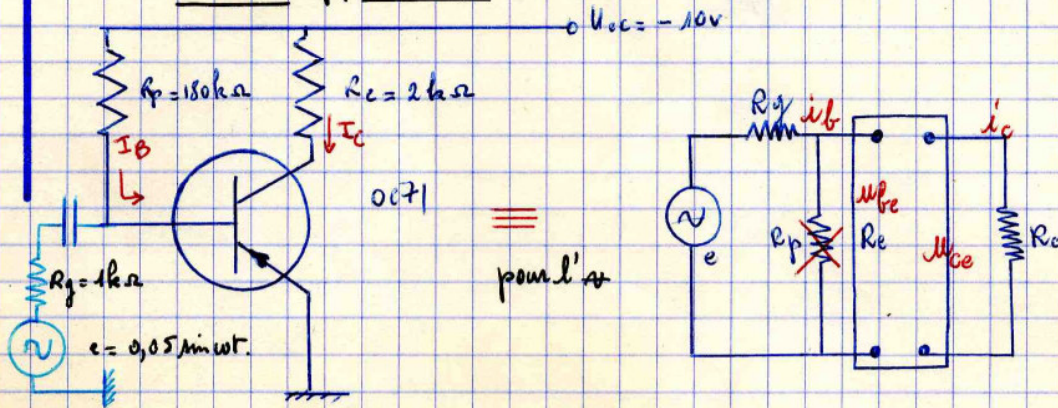 Ucc = - 10V
Rp = 180kΩ
Rc = 2kΩ
IB
IC
OC71
Rg = 1kΩ
e = 0,05 sin ωt.
≡
pour l'∿
Rg
ib
ic
e
Rp
ube
Re
uce
Rc